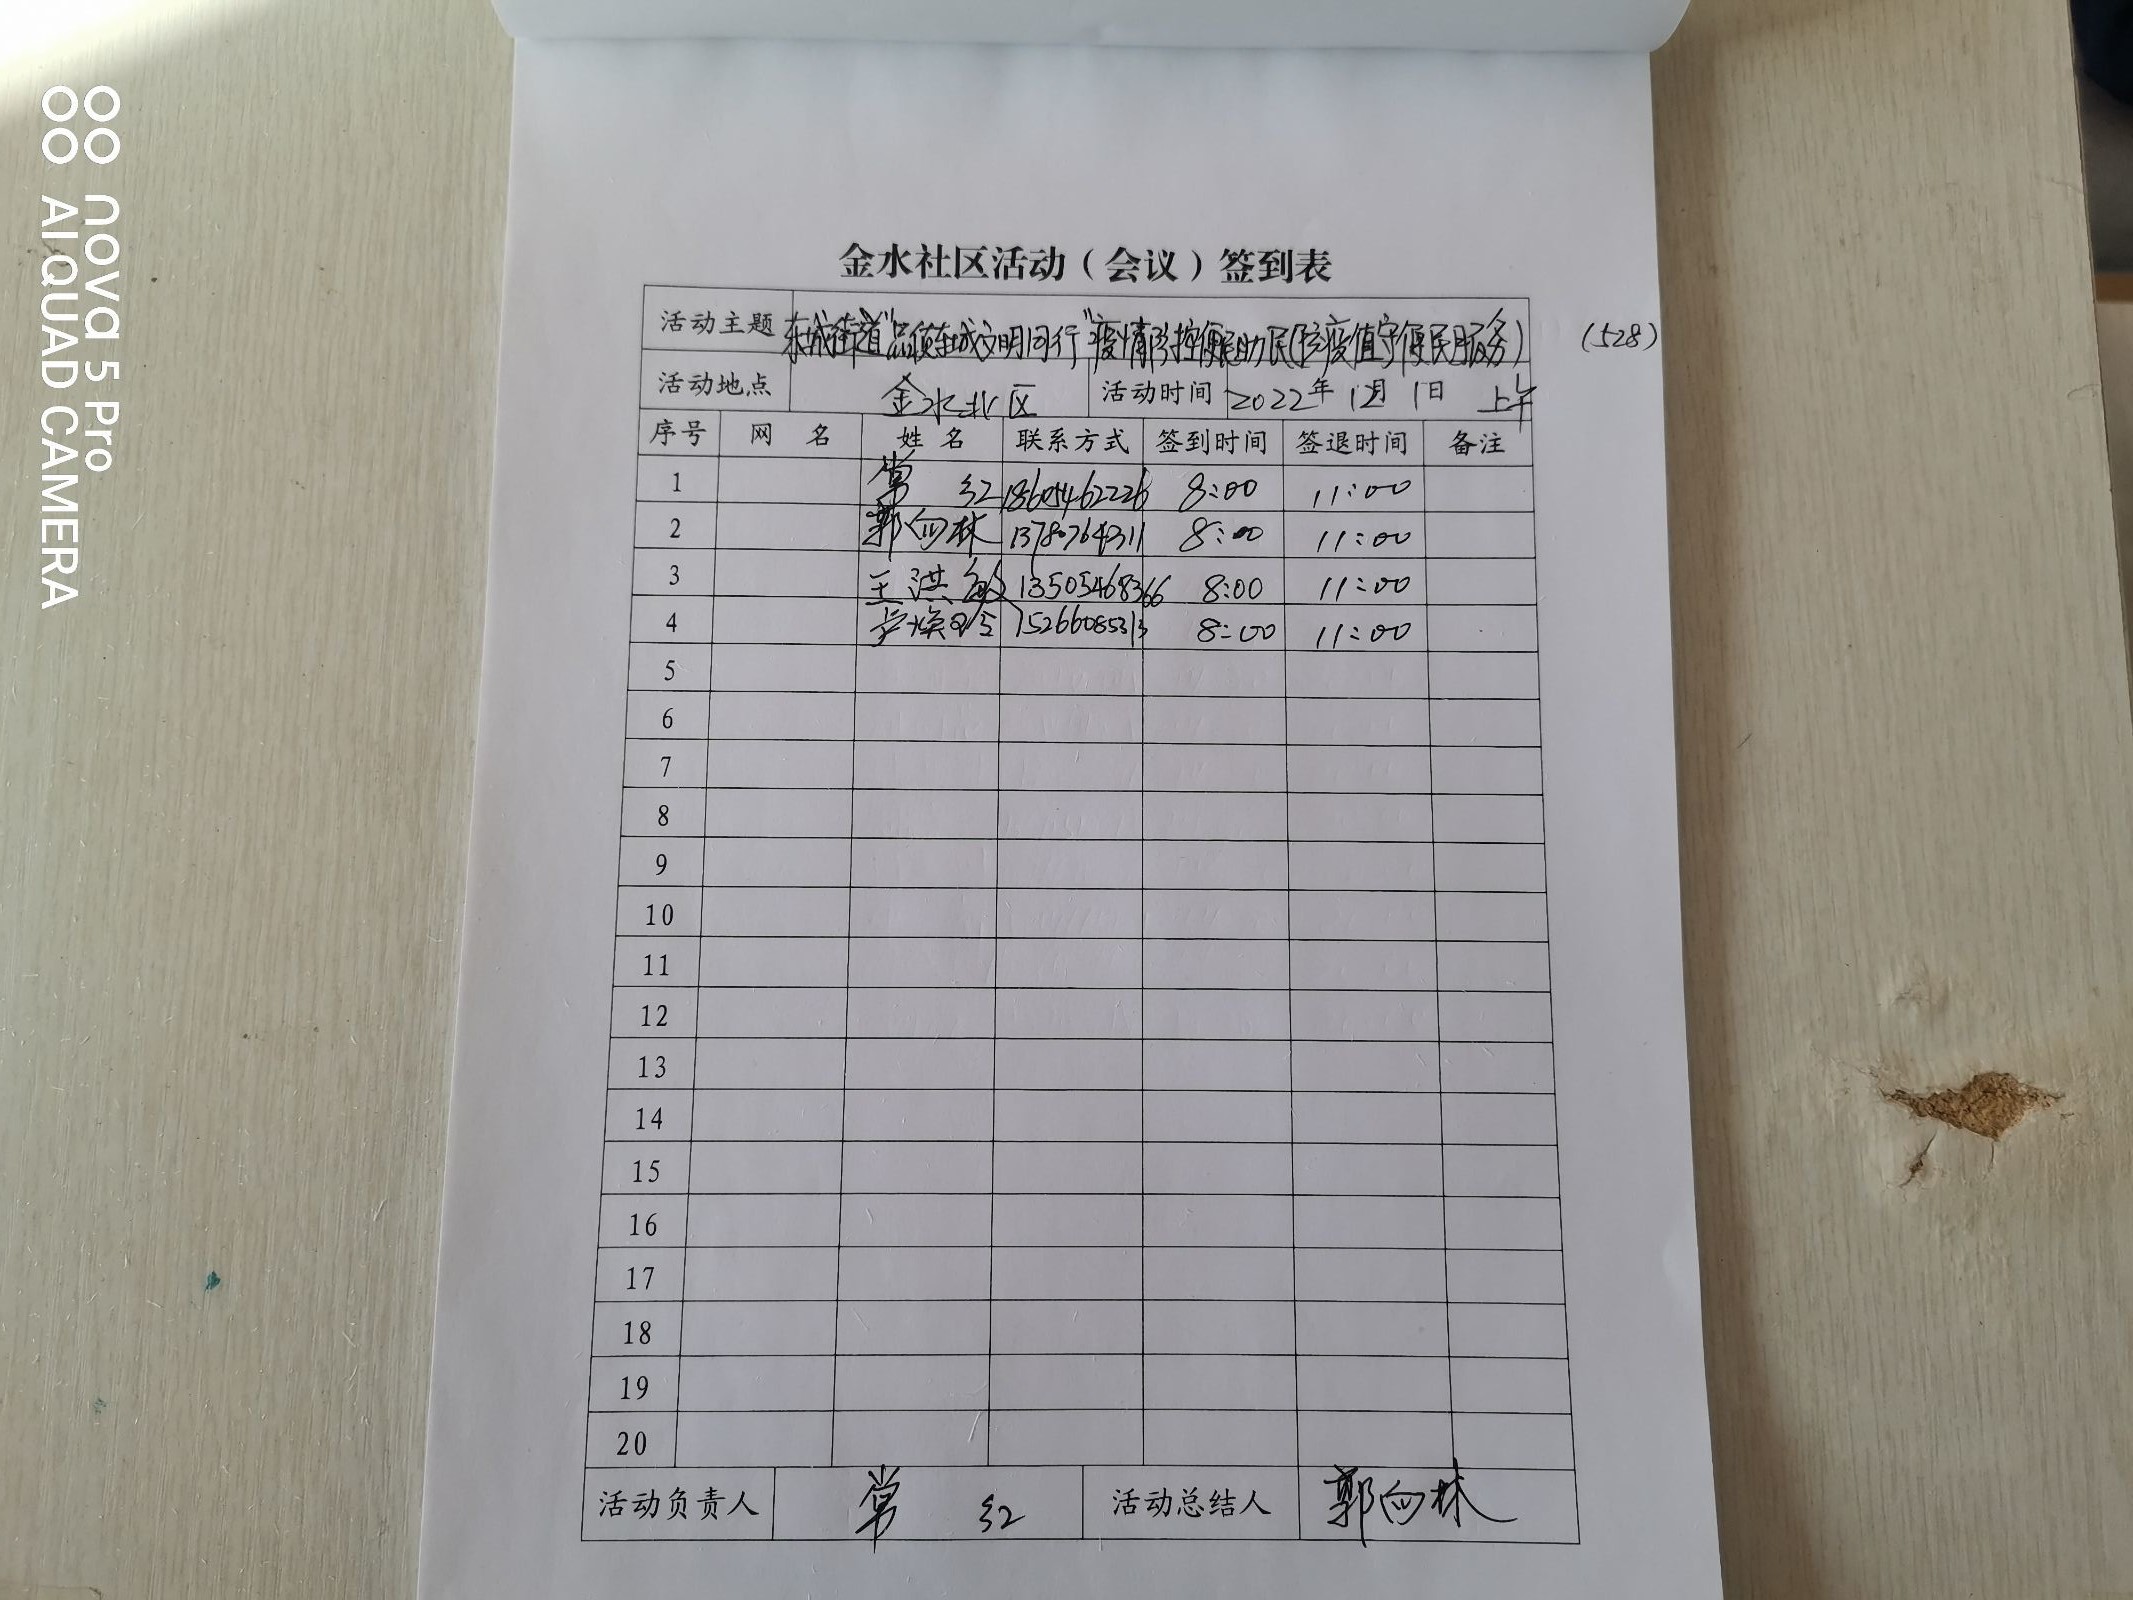 金水社区活动（会议）签到表
活动主题 东城街道"品质东城文明同行"疫情防控便民助民(防疫值守便民服务) (528)
活动地点 金水北区 活动时间 2022年12月1日 上午
序号 网名 姓名 联系方式 签到时间 签退时间 备注
1 常红 18605462226 8:00 11:00
2 郭向林 13780764311 8:00 11:00
3 王洪敏 13505468366 8:00 11:00
4 15266085313 8:00 11:00
5
6
7
8
9
10
11
12
13
14
15
16
17
18
19
20
活动负责人 常红 活动总结人 郭向林
nova 5 Pro
AI QUAD CAMERA